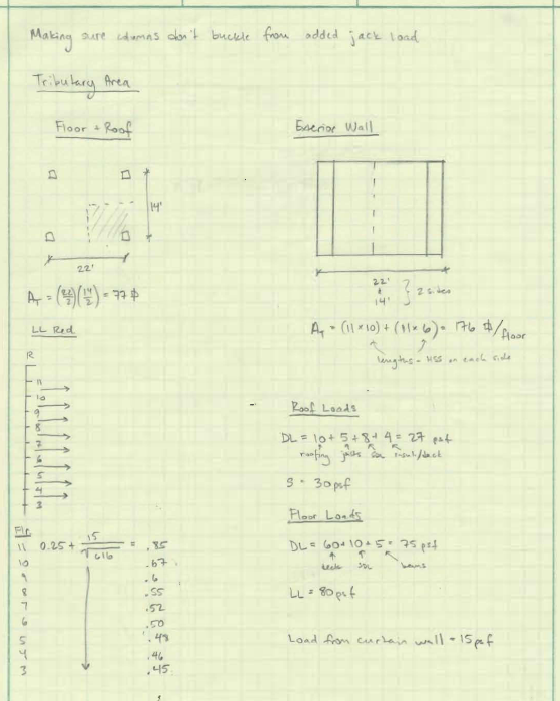 Making sure columns don't buckle from added jack load
Tributary Area
Floor + Roof
14'
22'
A_T = (22/2)(14/2) = 77 ⌷
LL Red
R
11
10
9
8
7
6
5
4
3
Flr
11 0.25 + 15/√616 = .85
10 .67
9 .6
8 .55
7 .52
6 .50
5 .48
4 .46
3 .45
Exterior Wall
22'
14' } 2 sides
A_T = (11 x 10) + (11 x 6) = 176 ⌷/floor
lengths - HSS on each side
Roof Loads
DL = 10 + 5 + 8 + 4 = 27 psf
roofing joists SDL insul/deck
S = 30 psf
Floor Loads
DL = 60 + 10 + 5 = 75 psf
deck SDL beams
LL = 80 psf
Load from curtain wall = 15 psf